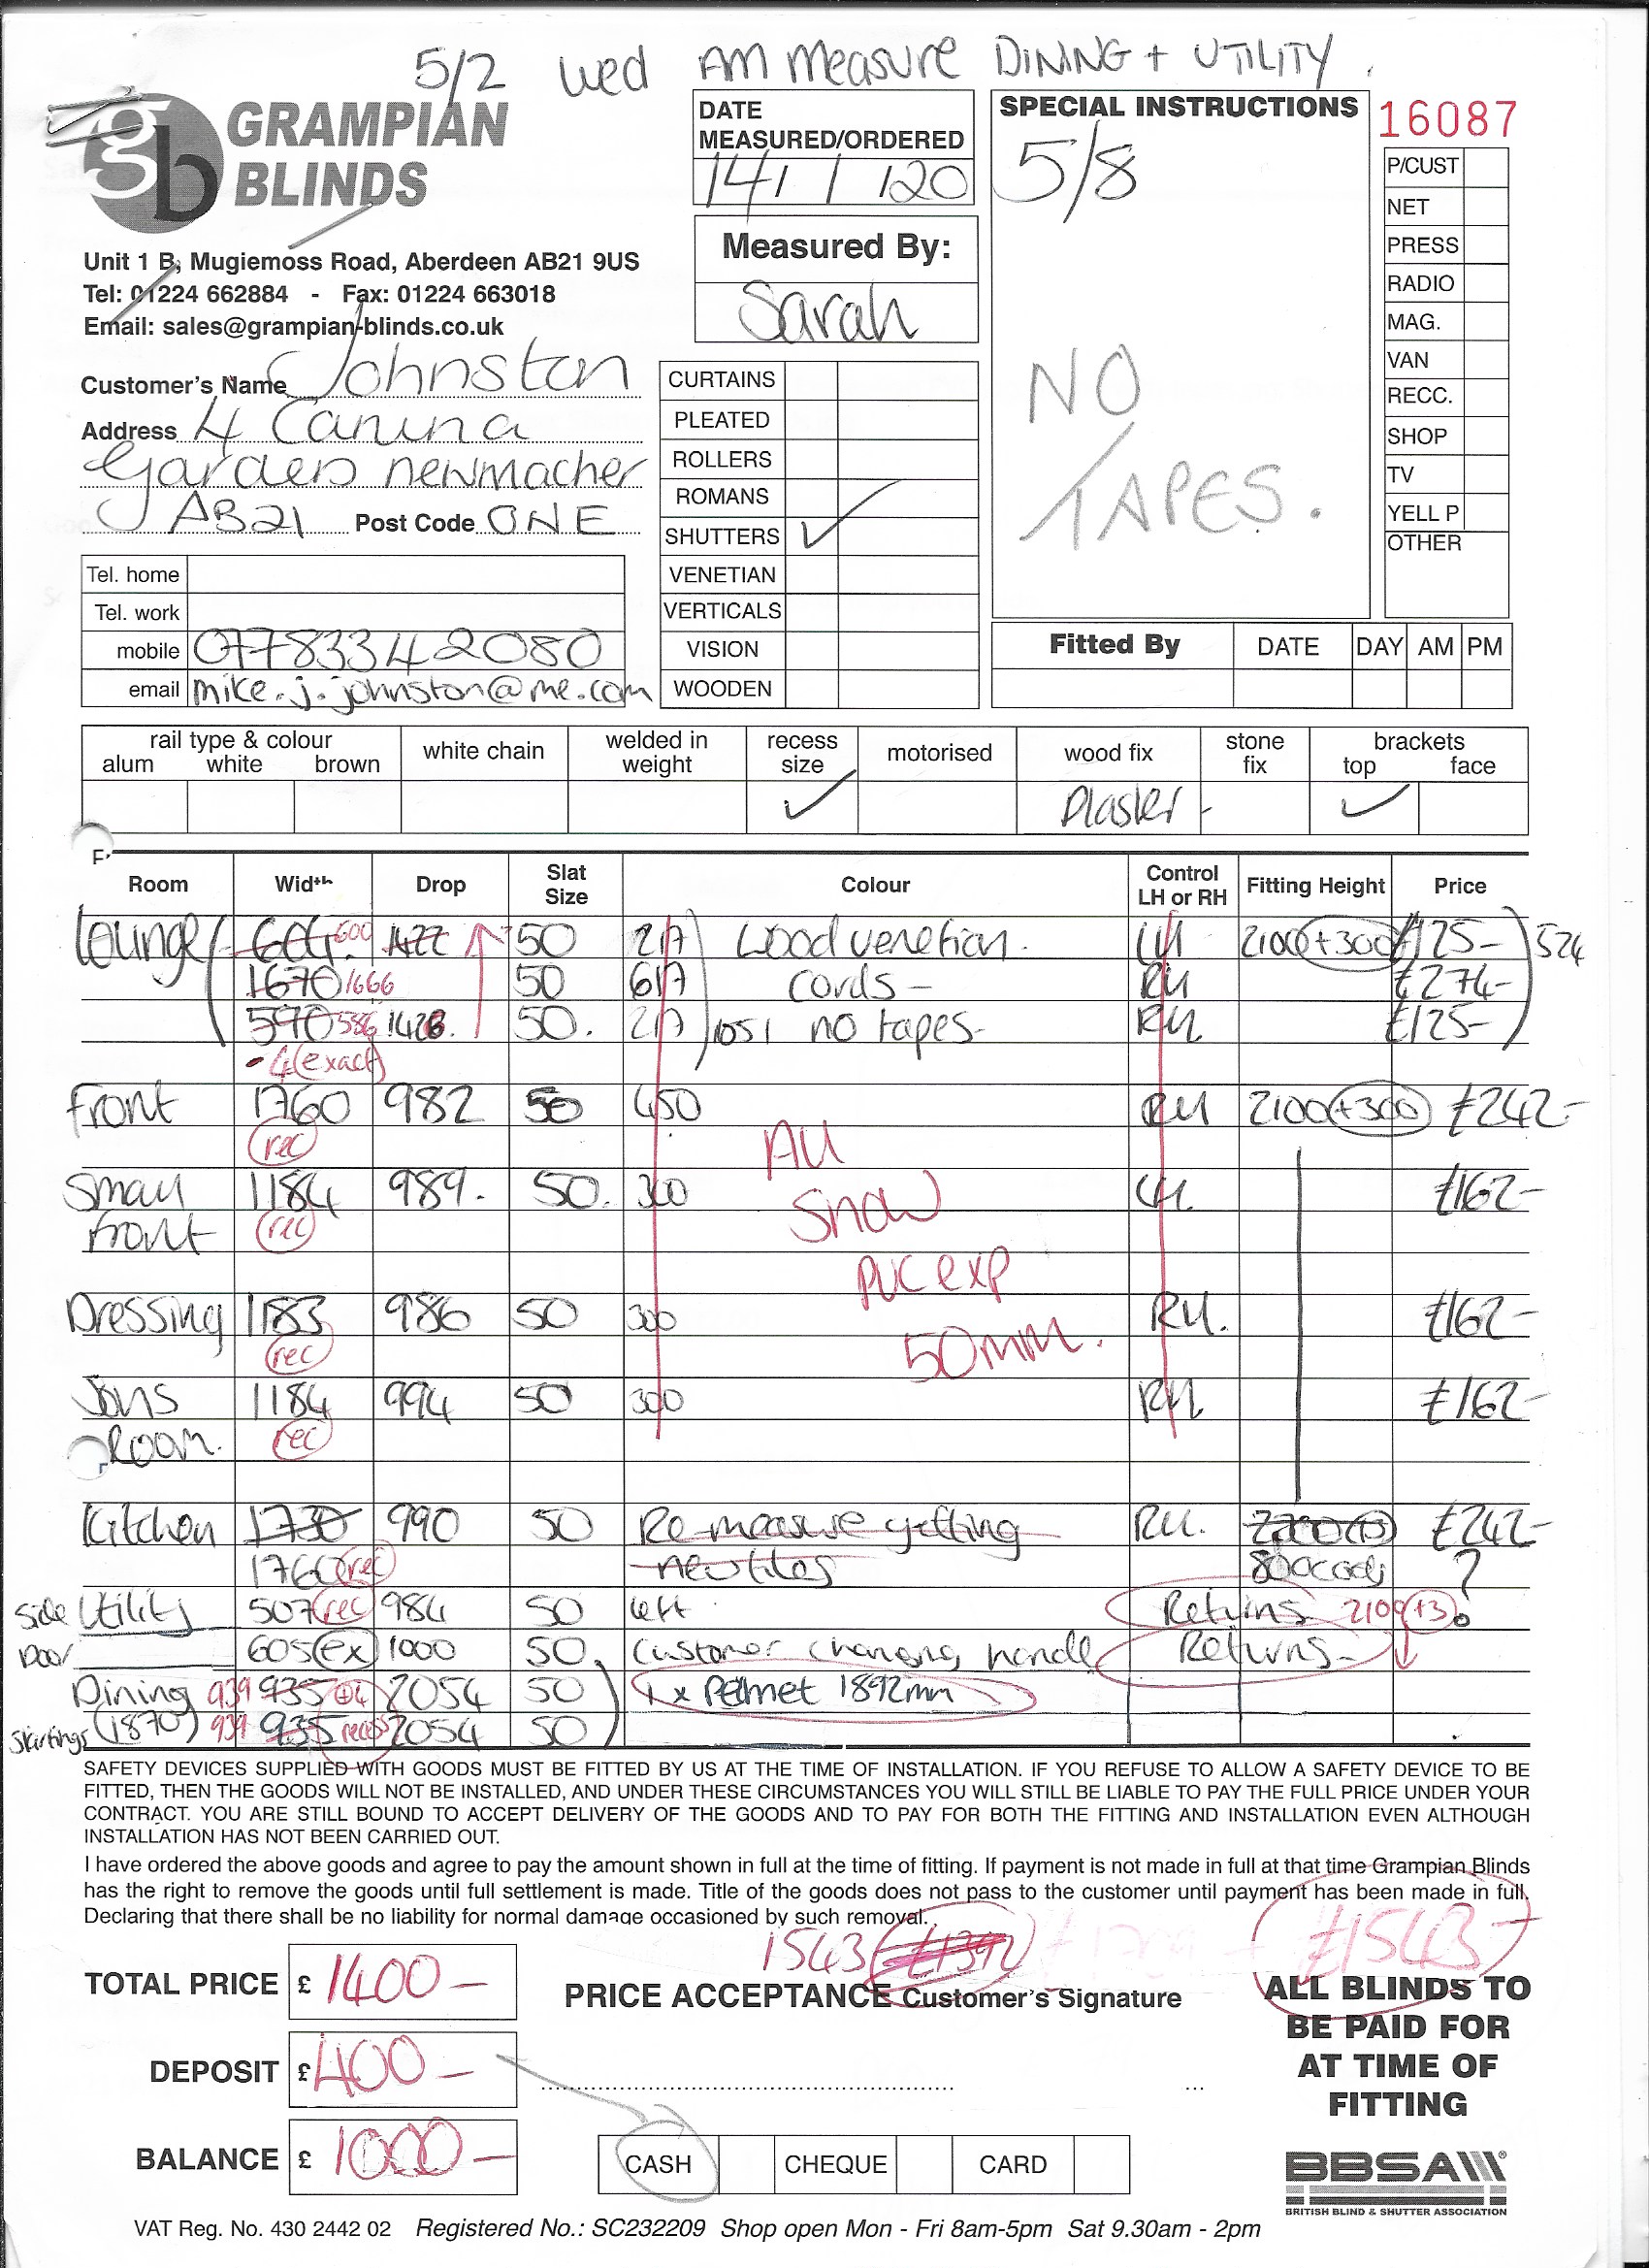 5/2 Wed AM measure DINING + UTILITY.
GRAMPIAN
BLINDS
gb
Unit 1 B, Mugiemoss Road, Aberdeen AB21 9US
Tel: 01224 662884 - Fax: 01224 663018
Email: sales@grampian-blinds.co.uk
Customer's Name Johnston
Address 4 Canina
Gardens newmacher
AB21 Post Code ONE
Tel. home
Tel. work
mobile 07783342080
email mike.j.johnston@me.com
DATE
MEASURED/ORDERED
14/1/20
Measured By:
Sarah
CURTAINS
PLEATED
ROLLERS
ROMANS
SHUTTERS ✓
VENETIAN
VERTICALS
VISION
WOODEN
SPECIAL INSTRUCTIONS
5/8
NO
TAPES.
16087
P/CUST
NET
PRESS
RADIO
MAG.
VAN
RECC.
SHOP
TV
YELL P
OTHER
Fitted By DATE DAY AM PM
rail type & colour white chain welded in recess motorised wood fix stone brackets
alum white brown weight size fix top face
✓ Plaster - ✓
Room Width Drop Slat Size Colour Control LH or RH Fitting Height Price
Lounge 604 600 1422 50 217 Wood venetian. LH 2100 +300 £125- 524
1670 1666 50 617 cords - RH £274-
590 586 1428. 50. 217 1051 no tapes- RH £125-
-4 (exact)
front 1760 982 50 450 RH 2100 +300 £242-
(rec) All
Small 1184 989. 50. 300 Snow LH. £162-
front (rec)
PVC exp
Dressing 1183 986 50 300 RH. £162-
(rec) 50mm.
Sons 1184 994 50 300 RH £162-
Room. (rec)
Kitchen 1730 990 50 Re-measure getting RH. £242-
1760 (rec) new tiles ?
Side Utility 507 (rec) 984 50 left Returns 2100 +3
Door 605 (ex) 1000 50. Customer changing handle Returns-
Dining 939 935 +4 2054 50 1 x Pelmet 1892mm
Skirtings (1870) 939 935 recess 2054 50
SAFETY DEVICES SUPPLIED WITH GOODS MUST BE FITTED BY US AT THE TIME OF INSTALLATION. IF YOU REFUSE TO ALLOW A SAFETY DEVICE TO BE
FITTED, THEN THE GOODS WILL NOT BE INSTALLED, AND UNDER THESE CIRCUMSTANCES YOU WILL STILL BE LIABLE TO PAY THE FULL PRICE UNDER YOUR
CONTRACT. YOU ARE STILL BOUND TO ACCEPT DELIVERY OF THE GOODS AND TO PAY FOR BOTH THE FITTING AND INSTALLATION EVEN ALTHOUGH
INSTALLATION HAS NOT BEEN CARRIED OUT.
I have ordered the above goods and agree to pay the amount shown in full at the time of fitting. If payment is not made in full at that time Grampian Blinds
has the right to remove the goods until full settlement is made. Title of the goods does not pass to the customer until payment has been made in full.
Declaring that there shall be no liability for normal damage occasioned by such removal.
1543 £1392 £1543-
TOTAL PRICE £ 1400-
PRICE ACCEPTANCE Customer's Signature
DEPOSIT £ 400-
BALANCE £ 1000-
CASH CHEQUE CARD
ALL BLINDS TO
BE PAID FOR
AT TIME OF
FITTING
BBSA
BRITISH BLIND & SHUTTER ASSOCIATION
VAT Reg. No. 430 2442 02 Registered No.: SC232209 Shop open Mon - Fri 8am-5pm Sat 9.30am - 2pm